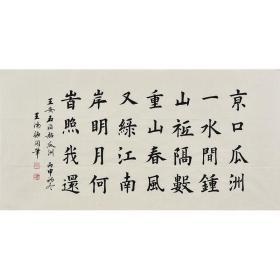 京口瓜洲
一水間鍾
山祗隔數
重山春風
又綠江南
岸明月何
旹照我還
王安石泊船瓜洲 丙申初冬
王